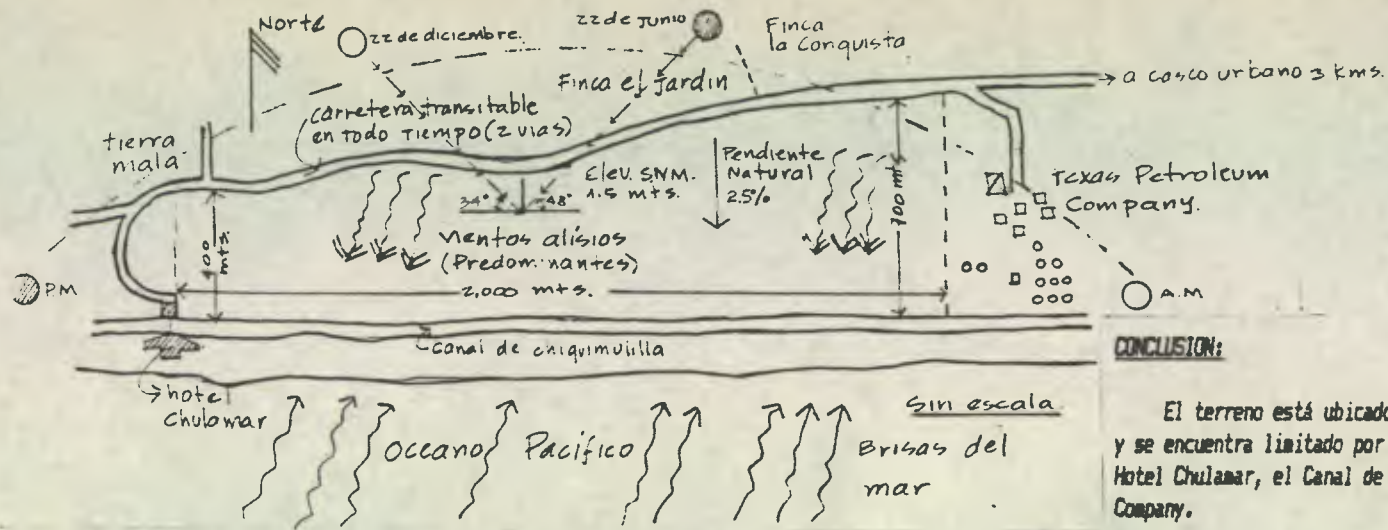 Norte
22 de diciembre.
22 de Junio
Finca
la Conquista
Finca el Jardin
→ a casco urbano 3 Kms.
carretera transitable
en todo tiempo (2 vias)
tierra
mala
Elev. S.N.M.
1.5 mts.
Pendiente
Natural
2.5%
34°
48°
Texas Petroleum
Company.
400
mts.
700 mts
Vientos alisios
(Predominantes)
2,000 mts.
P.M
A.M
canal de chiquimulilla
hotel
Chulamar
Sin escala
Oceano Pacífico
Brisas del
mar
CONCLUSION:
El terreno está ubicado
y se encuentra limitado por
Hotel Chulamar, el Canal de
Company.